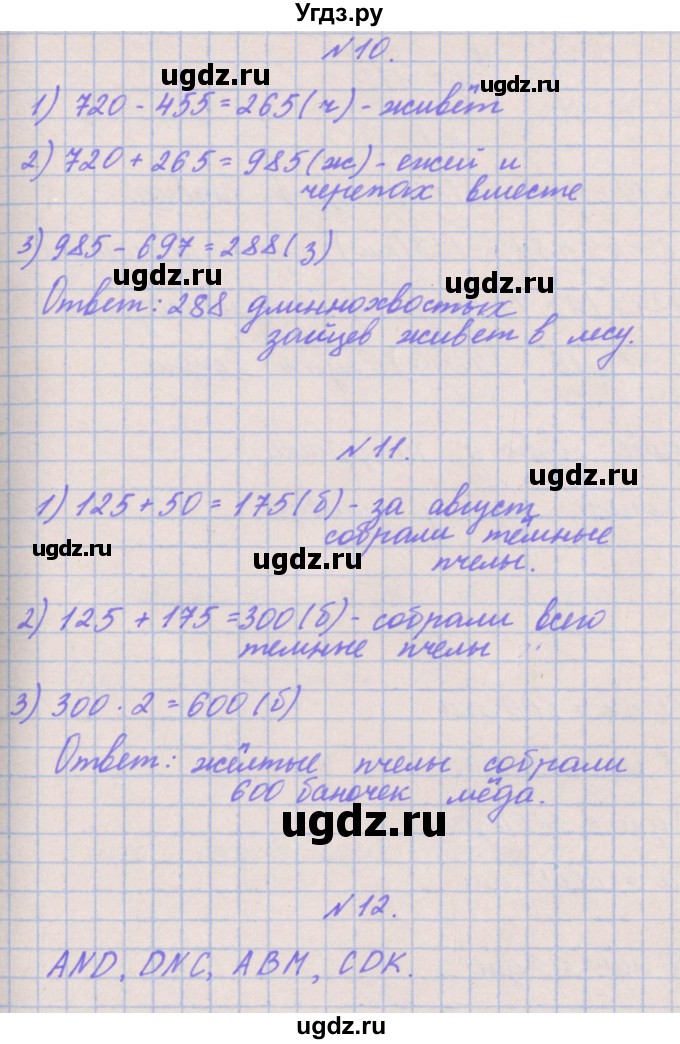 Угдз.ру
№10.
ugdz.ru
ugdz.ru
1) 720 - 455 = 265 (ч) - живёт
2) 720 + 265 = 985 (ж) - ежей и
черепах вместе
3) 985 - 697 = 288 (з)
ugdz.ru
ugdz.ru
Ответ: 288 длиннохвостых
зайцев живет в лесу.
№11.
ugdz.ru
1) 125 + 50 = 175 (б) - за август
собрали тёмные
ugdz.ru
ugdz.ru
пчелы.
2) 125 + 175 = 300 (б) - собрали всего
темные пчелы
3) 300 · 2 = 600 (б)
Ответ: жёлтые пчелы собрали
600 баночек мёда.
ugdz.ru
№12.
AND, DNC, ABM, CDK.
ugdz.ru